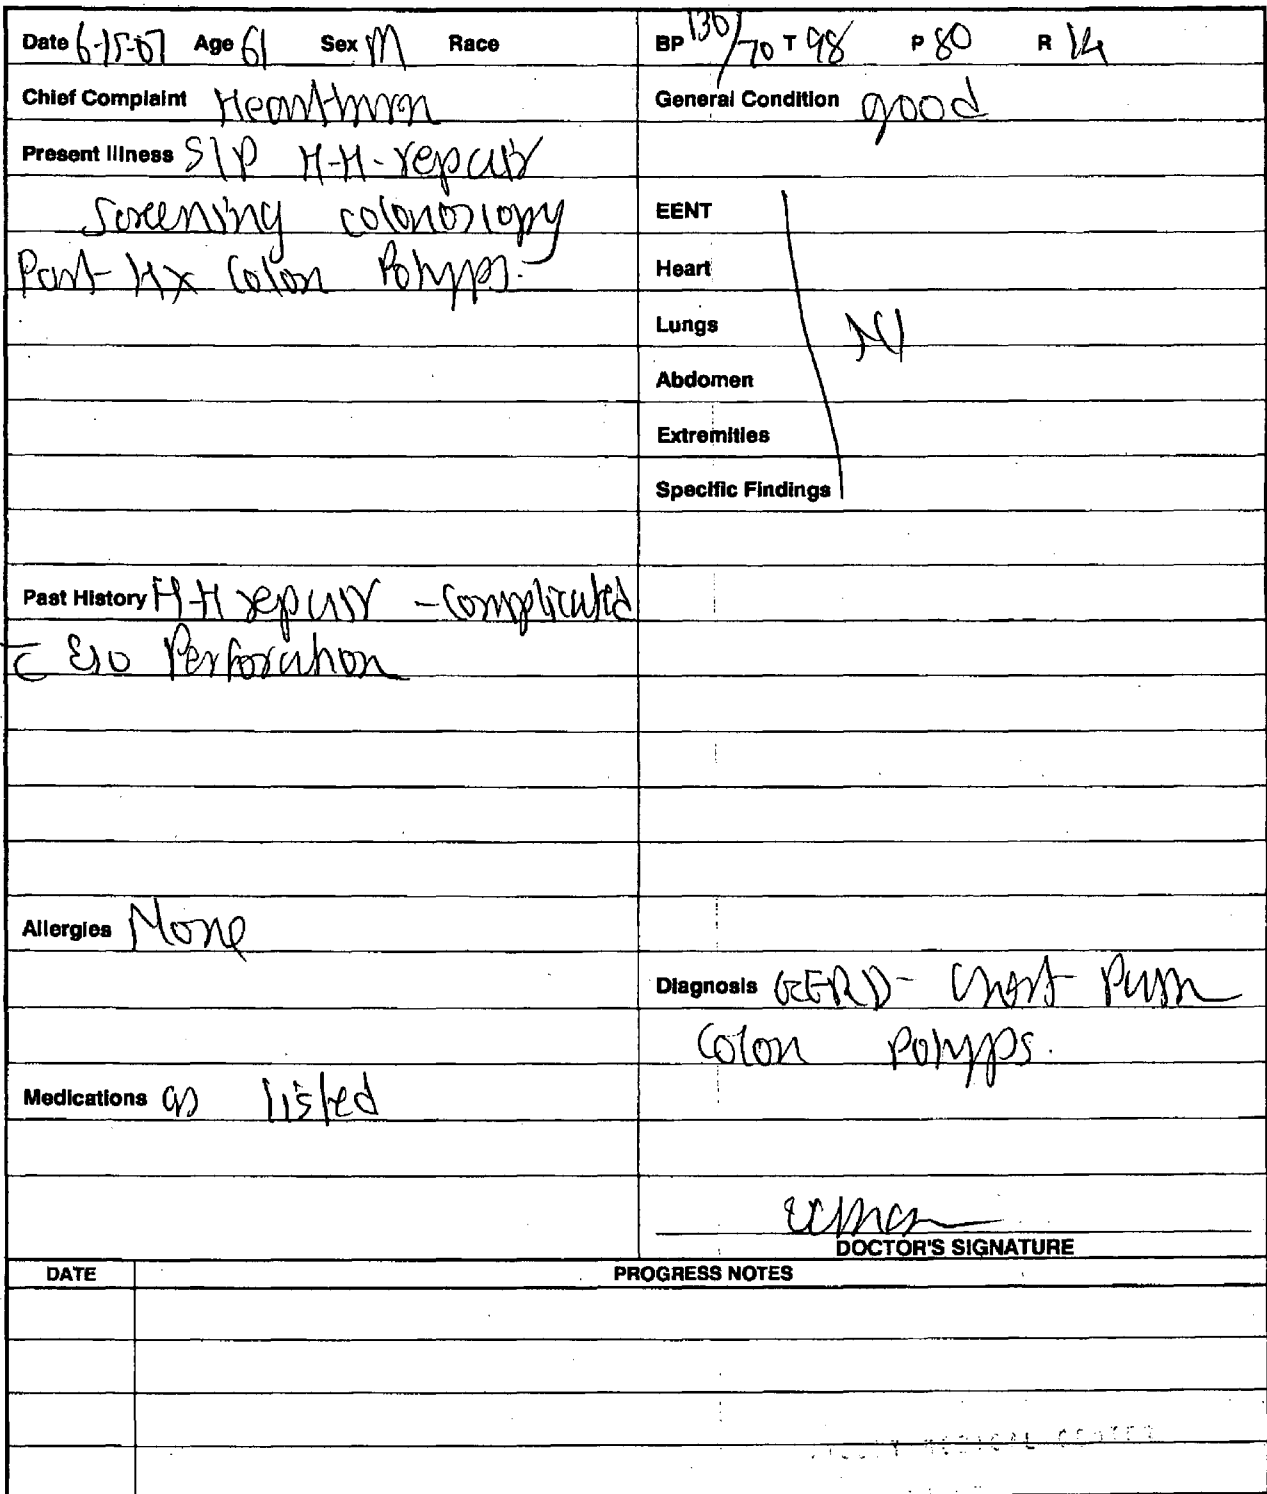 Date 6-15-07 Age 61 Sex M Race
Chief Complaint Heartburn
Present Illness S/P H-H-repair
Screening colonoscopy
Past Hx Colon Polyps.
Past History H-H repair - complicated
c̄ Eso Perforation
Allergies None
Medications as listed
BP 130/70 T 98 P 80 R 14
General Condition good
EENT
Heart
Lungs Nl
Abdomen
Extremities
Specific Findings
Diagnosis GERD - Chest Pain
Colon Polyps.
DOCTOR'S SIGNATURE
DATE PROGRESS NOTES
MEDICAL CENTER